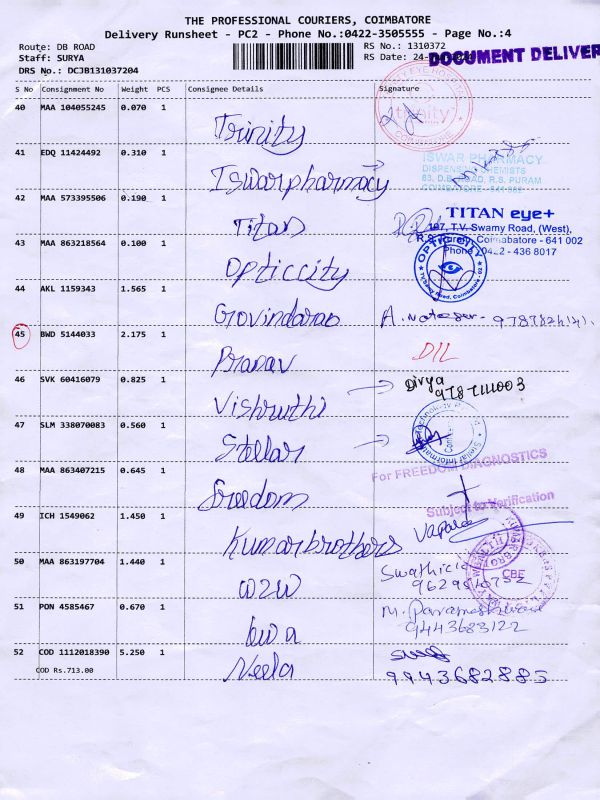 THE PROFESSIONAL COURIERS, COIMBATORE
Delivery Runsheet - PC2 - Phone No.:0422-3505555 - Page No.:4
Route: DB ROAD
Staff: SURYA
DRS No.: DCJB131037204
RS No.: 1310372
RS Date: 24-
DOCUMENT DELIVER
S No Consignment No Weight PCS Consignee Details Signature
40 MAA 104055245 0.070 1
Trinity
trinity
41 EDQ 11424492 0.310 1
Iswarpharmacy
ISWAR PHARMACY
DISPENSING CHEMISTS
63, D.B. ROAD, R.S. PURAM
COIMBATORE - 641 002
42 MAA 573395506 0.190 1
Titan
TITAN eye+
197, T.V. Swamy Road, (West),
R.S. Puram, Coimbatore - 641 002
Phone : 0422 - 436 8017
43 MAA 863218564 0.100 1
Opticcity
OPTIC CITY
44 AKL 1159343 1.565 1
Govindarao
45 BWD 5144033 2.175 1
Pranav
DIL
46 SVK 60416079 0.825 1
Vishruthi
Divya
47 SLM 338070083 0.560 1
Stellar
48 MAA 863407215 0.645 1
freedom
For FREEDOM DIAGNOSTICS
Subject to Verification
49 ICH 1549062 1.450 1
Kumar brothers
50 MAA 863197704 1.440 1
CBE
51 PON 4585467 0.670 1
9443683122
52 COD 1112018390 5.250 1
COD Rs.713.00
Neela
9943682885